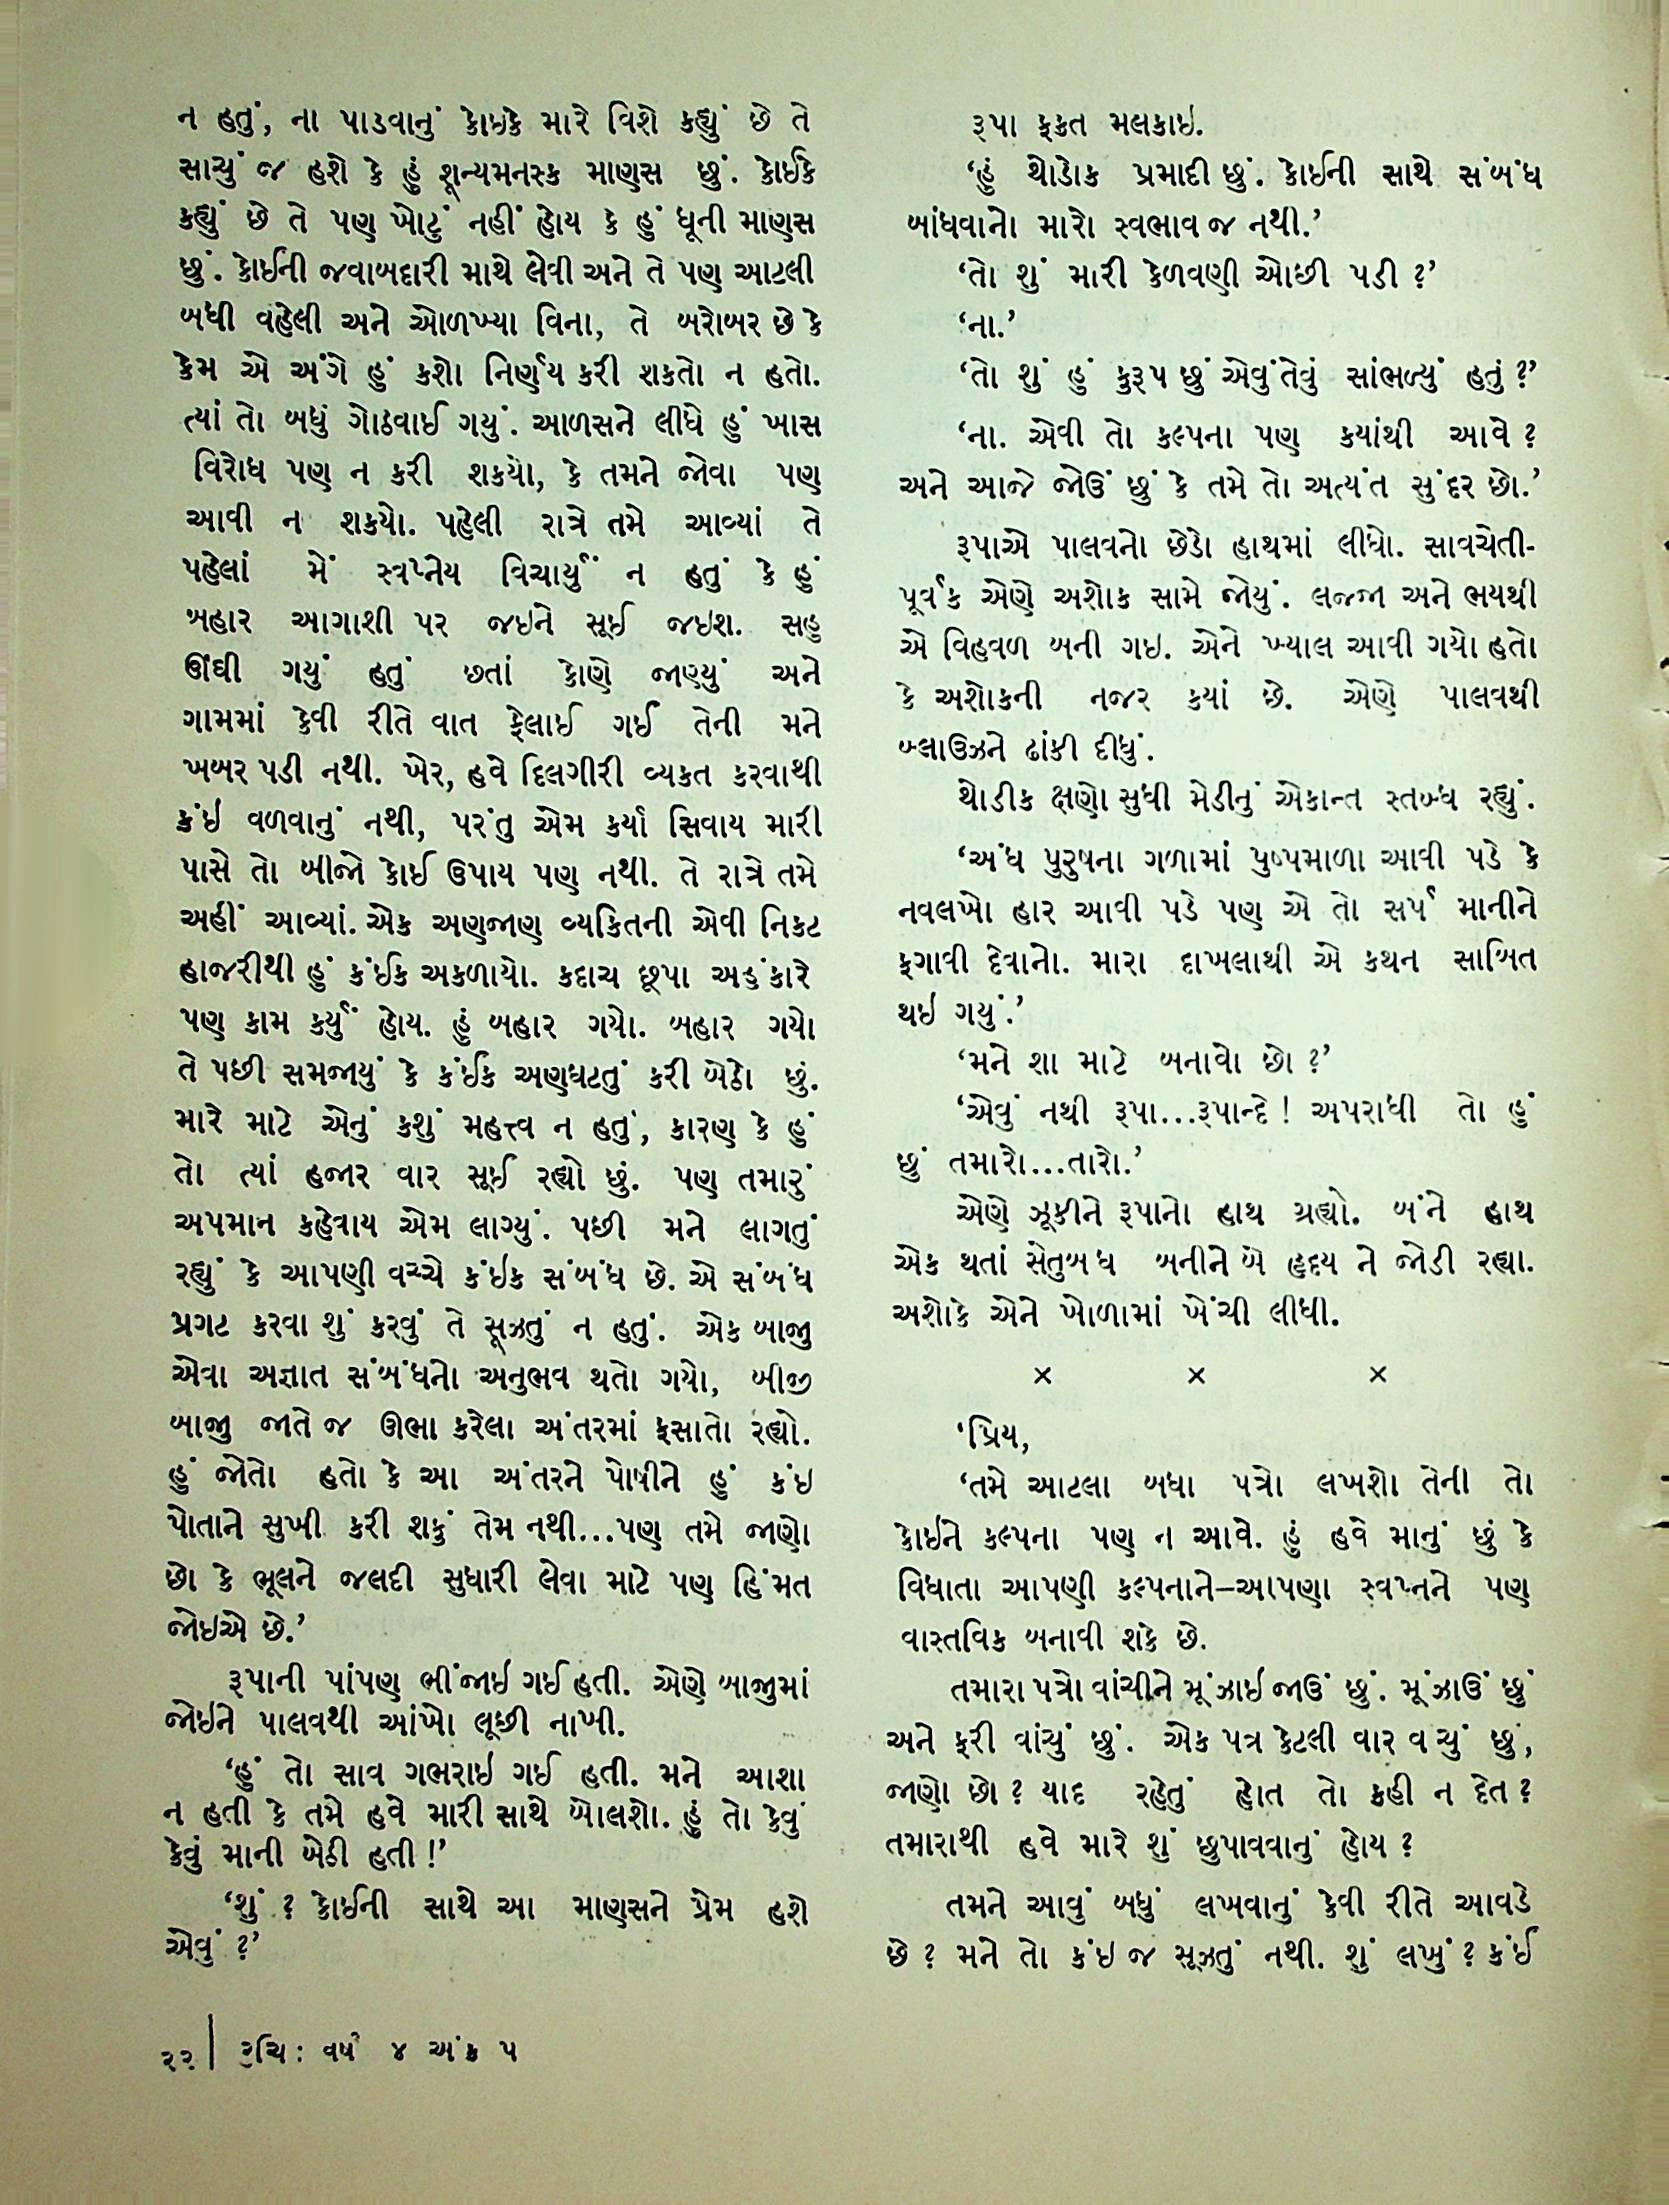 ન હતું, ના પાડવાનું કોઇકે મારે વિશે કહ્યું છે તે
સાચું જ હશે કે હું શૂન્યમનસ્ક માણસ છું. કોઈકે
કહ્યું છે તે પણ ખોટું નહીં હોય કે હું ધૂની માણસ
છું. કોઈની જવાબદારી માથે લેવી અને તે પણ આટલી
બધી વહેલી અને ઓળખ્યા વિના, તે બરોબર છે કે
કેમ એ અંગે હું કશો નિર્ણય કરી શકતો ન હતો.
ત્યાં તો બધું ગોઠવાઈ ગયું. આળસને લીધે હું ખાસ
વિરોધ પણ ન કરી શકયો, કે તમને જોવા પણ
આવી ન શકયો. પહેલી રાત્રે તમે આવ્યાં તે
પહેલાં મેં સ્વપ્નેય વિચાર્યું ન હતું કે હું
બહાર આગાશી પર જઇને સૂઈ જઇશ. સહુ
ઊંઘી ગયું હતું છતાં કોણે જાણ્યું અને
ગામમાં કેવી રીતે વાત ફેલાઈ ગઈ તેની મને
ખબર પડી નથી. ખેર, હવે દિલગીરી વ્યકત કરવાથી
કંઇ વળવાનું નથી, પરંતુ એમ કર્યા સિવાય મારી
પાસે તો બીજો કોઈ ઉપાય પણ નથી. તે રાત્રે તમે
અહીં આવ્યાં. એક અણજાણ વ્યકિતની એવી નિકટ
હાજરીથી હું કંઈક અકળાયો. કદાચ છૂપા અહંકારે
પણ કામ કર્યું હોય. હું બહાર ગયો. બહાર ગયો
તે પછી સમજાયું કે કંઈક અણઘટતું કરી બેઠો છું.
મારે માટે એનું કશું મહત્ત્વ ન હતું, કારણ કે હું
તો ત્યાં હજાર વાર સૂઈ રહ્યો છું. પણ તમારું
અપમાન કહેવાય એમ લાગ્યું. પછી મને લાગતું
રહ્યું કે આપણી વચ્ચે કંઇક સંબંધ છે. એ સંબંધ
પ્રગટ કરવા શું કરવું તે સૂઝતું ન હતું. એક બાજુ
એવા અજ્ઞાત સંબંધનો અનુભવ થતો ગયો, બીજી
બાજુ જાતે જ ઊભા કરેલા અંતરમાં ફસાતો રહ્યો.
હું જોતો હતો કે આ અંતરને પોષીને હું કંઇ
પોતાને સુખી કરી શકું તેમ નથી...પણ તમે જાણો
છો કે ભૂલને જલદી સુધારી લેવા માટે પણ હિંમત
જોઇએ છે.’
રૂપાની પાંપણ ભીંજાઇ ગઈ હતી. એણે બાજુમાં
જોઇને પાલવથી આંખો લૂછી નાખી.
‘હું તો સાવ ગભરાઇ ગઈ હતી. મને આશા
ન હતી કે તમે હવે મારી સાથે બોલશો. હું તો કેવું
કેવું માની બેઠી હતી !’
‘શું ? કોઈની સાથે આ માણસને પ્રેમ હશે
એવું ?’
રૂપા ફકત મલકાઇ.
‘હું થોડોક પ્રમાદી છું. કોઇની સાથે સંબંધ
બાંધવાનો મારો સ્વભાવ જ નથી.’
‘તો શું મારી કેળવણી ઓછી પડી ?’
‘ના.’
‘તો શું હું કુરૂપ છું એવુંતેવું સાંભળ્યું હતું ?’
‘ના. એવી તો કલ્પના પણ કયાંથી આવે ?
અને આજે જોઉં છું કે તમે તો અત્યંત સુંદર છો.’
રૂપાએ પાલવનો છેડો હાથમાં લીધો. સાવચેતી-
પૂર્વક એણે અશોક સામે જોયું. લજ્જા અને ભયથી
એ વિહવળ બની ગઇ. એને ખ્યાલ આવી ગયો હતો
કે અશોકની નજર કયાં છે. એણે પાલવથી
બ્લાઉઝને ઢાંકી દીધું.
થોડીક ક્ષણો સુધી મેડીનું એકાન્ત સ્તબ્ધ રહ્યું.
‘અંધ પુરુષના ગળામાં પુષ્પમાળા આવી પડે કે
નવલખો હાર આવી પડે પણ એ તો સર્પ માનીને
ફગાવી દેવાનો. મારા દાખલાથી એ કથન સાબિત
થઇ ગયું.’
‘મને શા માટે બનાવો છો ?’
‘એવું નથી રૂપા...રૂપાન્દે ! અપરાધી તો હું
છું તમારો...તારો.’
એણે ઝૂકીને રૂપાનો હાથ ગ્રહ્યો. બંને હાથ
એક થતાં સેતુબંધ બનીને બે હૃદય ને જોડી રહ્યા.
અશોકે એને ખોળામાં ખેંચી લીધી.
× × ×
‘પ્રિય,
‘તમે આટલા બધા પત્રો લખશો તેની તો
કોઇને કલ્પના પણ ન આવે. હું હવે માનું છું કે
વિધાતા આપણી કલ્પનાને–આપણા સ્વપ્નને પણ
વાસ્તવિક બનાવી શકે છે.
તમારા પત્રો વાંચીને મૂંઝાઇ જાઉં છું. મૂંઝાઉં છું
અને ફરી વાંચું છું. એક પત્ર કેટલી વાર વાંચું છું,
જાણો છો ? યાદ રહેતું હોત તો કહી ન દેત ?
તમારાથી હવે મારે શું છુપાવવાનું હોય ?
તમને આવું બધું લખવાનું કેવી રીતે આવડે
છે ? મને તો કંઇ જ સૂઝતું નથી. શું લખું ? કંઈ
૨૨ | રુચિ : વર્ષ ૪ અંક ૫